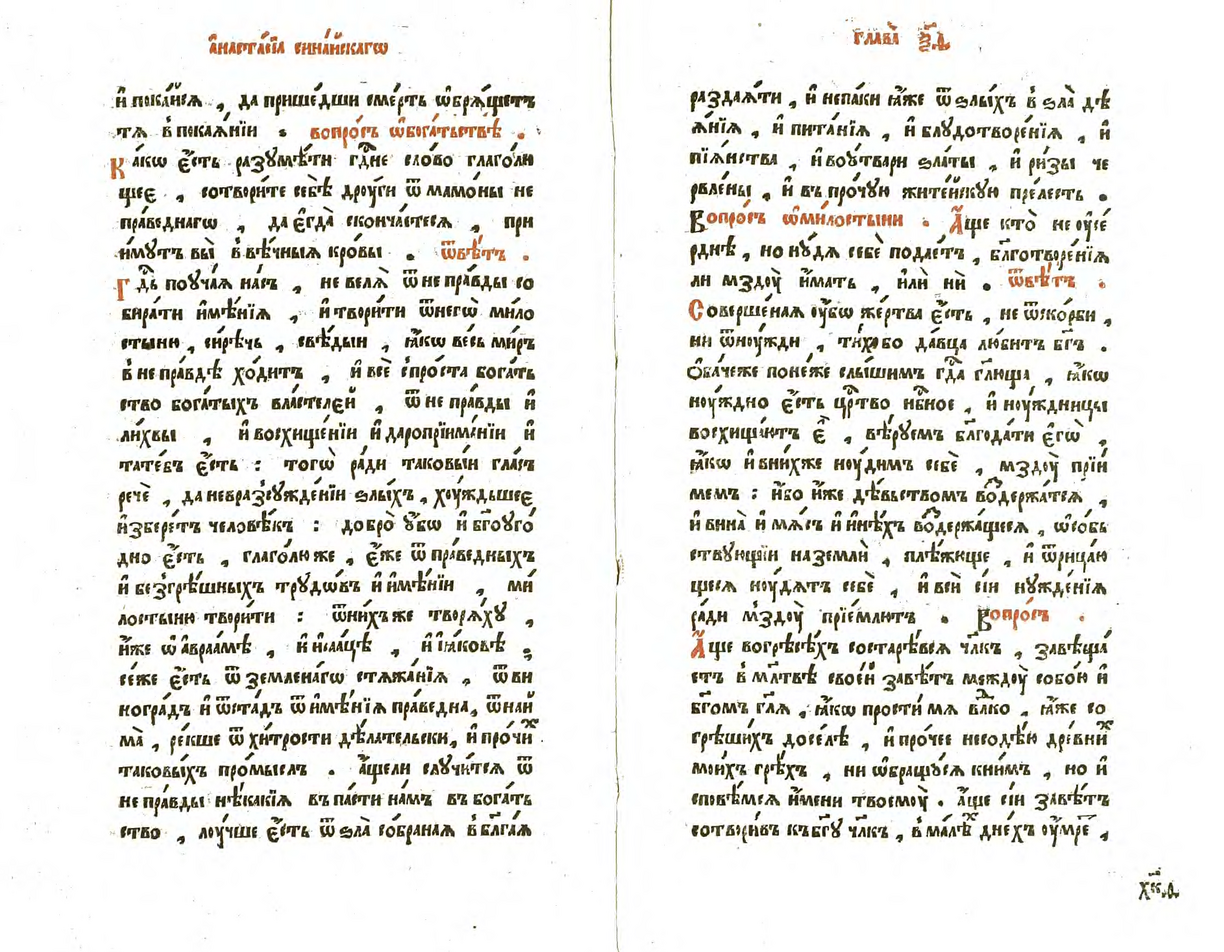 а҆наста́сїѧ синаи́скагѡ
и҆ пока́йсѧ , да прише́дши сме́рть ѡ҆брѧ́щетъ
тѧ̀ в̾покаѧ́нїи . вопро́съ ѡ҆бога́тьствѣ .
Ка́кѡ є҆́сть разꙋмѣ́ти гд҇не сло́во глаго́лю
щеє , сотвори́те себѣ̀ дрꙋ́ги ѿ мамо́ны не
пра́веднагѡ , да є҆гда̀ сконча́етесѧ , при
и́мꙋтъ вы̀ в̾вѣ́чныѧ кро́вы . ѿвѣ́тъ .
Гд҇ь поꙋча́ѧ на́съ , не велѧ̀ ѿ непра́вды со
бира́ти и҆мѣ́нїѧ , и҆ твори́ти ѿнегѡ̀ ми́ло
стыню , си́рѣчь , свѣ́дыи , ꙗ҆́кѡ весь ми́ръ
в̾ не пра́вдѣ хо́дитъ , и҆ всѐ с̾про́ста бога́ть
ство бога́тыхъ власте́лєй , ѿ не пра́вды и҆
ли́хвы , и҆ восхище́нїи и҆ даропрїима́нїи и҆
тате́бъ є҆́сть : тогѡ̀ ра́ди таковы́и гла́съ
речѐ , да неразсꙋжде́нїи ѕлы́хъ , хꙋ́ждьшеє
и҆збере́тъ человѣ́къ : добро̀ ᲂу҆́бѡ и҆ бг҃оꙋго́
дно є҆́сть , глаго́лю же , є҆́же ѿ пра́ведныхъ
и҆ безгрѣ́шныхъ трꙋдѡ́въ и҆ и҆мѣ́нїи , ми́
лостыню твори́ти : ѿни́хъже творѧ́хꙋ ,
и҆́же ѡ҆ а҆враа́мѣ , и҆ и҆саа́цѣ , и҆ і҆ꙗ́ковѣ ;
се́же є҆́сть ѿ земле́нагѡ стѧжа́нїѧ , ѿ ви
ногра́дъ и҆ ѿста́дъ ѿ и҆мѣ́нїѧ пра́ведна , ѿнаи
ма̀ , ре́кше ѿ хи́трости дѣ́лательски , и҆ про́чиⷯ
таковы́хъ про́мыслъ . а҆́щели слꙋчи́тсѧ ѿ
не пра́вды нѣ́какїѧ въпа́сти на́мъ въ бога́ть
ство , лꙋ́чше є҆́сть ѿ ѕла̀ со́браная в̾ блг҃а́ѧ
глава̀ ѯ҃д
раздаѧ́ти , и҆ непа́ки ꙗ҆́же ѿ ѕлы́хъ в̾ ѕла̀ дѣ
ѧ́нїѧ , и҆ пита́нїѧ , и҆ блꙋдотворе́нїѧ , и҆
пїѧ́нства , и҆ воᲂутвари зла́ты , и҆ ри́зы че
рвле́ны , и҆ въ про́чꙋю жите́йскꙋю пре́лесть .
Вопро́съ ѡ҆ми́лостыни . А҆́ще кто̀ не оу҆се́
рднѣ , но нꙋ́дѧ себѐ подае́тъ , бл҃готворе́нїѧ
ли мздꙋ̀ и҆́мать , и҆лѝ нѝ . ѿвѣ́тъ .
Соверше́наѧ оу҆́бѡ же́ртва є҆́сть , не ѿско́рби ,
ни ѿнꙋ́жди , ти́хабо да́вца лю́битъ бг҃ъ .
Ѻ҆ба́чеже поне́же слы́шимъ гд҇а гл҃юща , ꙗ҆́кѡ
нꙋ́ждно є҆́сть црⷭ҇тво нб҇ное , и҆ нꙋ́ждницы
восхища́ютъ є҆̀ , вѣ́рꙋемъ бл҃года́ти є҆гѡ̀ ,
ꙗ҆́кѡ и҆ вни́хже нꙋ́димъ себѐ , мздꙋ̀ прїи́
мемъ : и҆́бо и҆́же дѣ́вьствомъ воⷥдержа́тсѧ ,
и҆ вина̀ и҆ мѧ́съ и҆ и҆нѣ́хъ воⷥдержа́щиесѧ , ѡ҆со́бь
ствꙋющїи на землѝ , плѣ́жище , и҆ ѿрица́ю
щесѧ нꙋ́дѧтъ себѐ , и҆ вси́ сїи нꙋжде́нїѧ
ра́ди мздꙋ̀ прїе́млютъ . Вопро́съ .
А҆́ще вогрѣсѣ́хъ состарѣ́всѧ чл҃къ , завѣща
етъ в̾ мл҃твѣ свое́й завѣ́тъ междꙋ̀ собо́ю и҆
бг҃омъ гл҃ѧ , ꙗ҆́кѡ прости́ мѧ влⷣко , ꙗ҆́же со
грѣши́хъ досе́лѣ , и҆ про́чее несодѣ́ю дре́внїиⷯ
мои́хъ грѣ́хъ , ни ѡ҆бращꙋ́сѧ кни́мъ , но и҆
сповѣ́мсѧ и҆́мени твоемꙋ̀ . а҆́ще сїи завѣ́тъ
сотвори́въ къбг҃ꙋ чл҃къ , в̾ ма́лѣ дне́хъ оу҆́мре ,